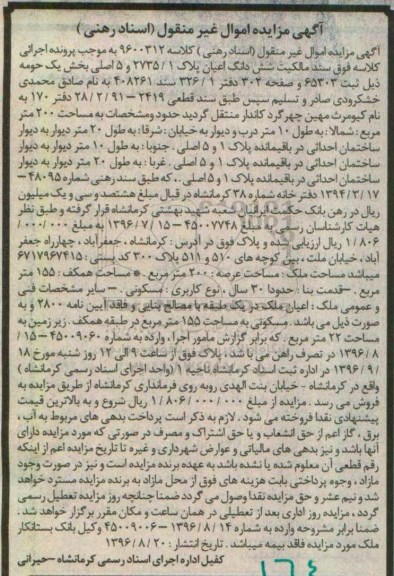 آگهی مزایده اموال غیر منقول (اسناد رهنی)
آگهی مزایده اموال غیر منقول (اسناد رهنی) کلاسه ۹۶۰۰۳۱۲ به موجب پرونده اجرائی
کلاسه فوق سند مالکیت شش دانگ اعیان پلاک ۱ / ۲۷۳۵ و ۵ اصلی بخش یک حومه
ذیل ثبت ۶۵۳۰۳ و صفحه ۳۰۴ دفتر ۱ / ۳۲۶ سند ۴۰۸۲۶۱ به نام صادق محمدی
خشکرودی صادر و تسلیم سپس طبق سند قطعی ۲۴۱۹ – ۹۱ / ۲ / ۲۸ دفتر ۱۷۰ به
نام کیومرث مهین چهرگرد کاندار منتقل گردید حدود ومشخصات به مساحت ۲۰۰ متر
مربع : شمالا : به طول ۱۰ متر درب و دیوار به خیابان : شرقا : به طول ۲۰ متر دیوار به دیوار
ساختمان احداثی در باقیمانده پلاک ۱ و ۵ اصلی . جنوبا : به طول ۱۰ متر دیوار به دیوار
ساختمان احداثی در باقیمانده پلاک ۱ و ۵ اصلی . غربا : به طول ۲۰ متر دیوار به دیوار
ساختمان احداثی در باقیمانده پلاک ۱ و ۵ اصلی .، که طبق سند رهنی شماره ۴۸۰۹۵ –
۱۳۹۴/۳/۱۷ دفتر خانه شماره ۳۸ کرمانشاه در قبال مبلغ هشتصد و سی و یک میلیون
ریال در رهن بانک حکمت ایرانیان شعبه شهید بهشتی کرمانشاه قرار گرفته و طبق نظر
هیات کارشناسان رسمی به مبلغ ۴۵۰۰۷۷۴۸ – ۱۳۹۶/۷/۱۵ به مبلغ ۰۰۰/۰۰۰/
۱/۸۰۶ ریال ارزیابی شده و پلاک فوق در آدرس : کرمانشاه ، جعفرآباد ، چهارراه جعفر
آباد ، خیابان ملت ، بین کوچه های ۵۱۰ و ۵۱۱ پلاک ۳۰۰ کد پستی : ۶۷۱۷۹۶۷۴۱۵
میباشد مساحت ملک : مساحت عرصه : ۲۰۰ متر مربع . مساحت همکف : ۱۵۵ متر
مربع . –قدمت بنا : حدودا ۳۰ سال . نوع کاربری : مسکونی . – سایر مشخصات فنی
و عمومی ملک : اعیان ملک در یک طبقه با مصالح بنایی و فاقد آیین نامه ۲۸۰۰ و به
صورت ذیل می باشد . مسکونی به مساحت ۱۵۵ متر مربع در طبقه همکف . زیر زمین به
مساحت ۲۲ متر مربع . که برابر گزارش مامور اجرا ، وارده به شماره ۴۵۰۰۹۰۶۰ – ۱۵/
۱۳۹۶/۸ در تصرف راهن می باشد ، پلاک فوق از ساعت ۹ الی ۱۲ روز شنبه مورخ ۱۸
/ ۹ / ۱۳۹۶ در اداره ثبت اسناد کرمانشاه ناحیه ۱ (واحد اجرای اسناد رسمی کرمانشاه )
واقع در کرمانشاه – خیابان بنت الهدی روبه روی فرمانداری کرمانشاه از طریق مزایده به
فروش می رسد . مزایده از مبلغ ۰۰۰ / ۰۰۰ / ۱/۸۰۶ ریال شروع و به بالاترین قیمت
پیشنهادی نقدا فروخته می شود . لازم به ذکر است پرداخت بدهی های مربوط به آب ،
برق ، گاز اعم از حق انشعاب و یا حق اشتراک و مصرف در صورتی که مورد مزایده دارای
آنها باشد و نیز بدهی های مالیاتی و عوارض شهرداری و غیره تا تاریخ مزایده اعم از اینکه
رقم قطعی آن معلوم شده یا نشده باشد به عهده برنده مزایده است و نیز در صورت وجود
مازاد ، وجوه پرداختی بابت هزینه های فوق از محل مازاد به برنده مزایده مسترد خواهد
شد و نیم عشر و حق مزایده نقدا وصول می گردد ضمنا چنانچه روز مزایده تعطیل رسمی
گردد ، مزایده روز اداری بعد از تعطیلی در همان ساعت و مکان مقرر برگزار خواهد شد :
ضمنا برابر مشروحه وارده به شماره ۴۵۰۰۹۰۰۶ – ۱۳۹۶/۸/۱۴ وکیل بانک بستانکار
ملک مورد مزایده فاقد بیمه میباشد . تاریخ انتشار : ۱۳۹۶/۸/۲۰
کفیل اداره اجرای اسناد رسمی کرمانشاه–حیرانی
۱۶۴